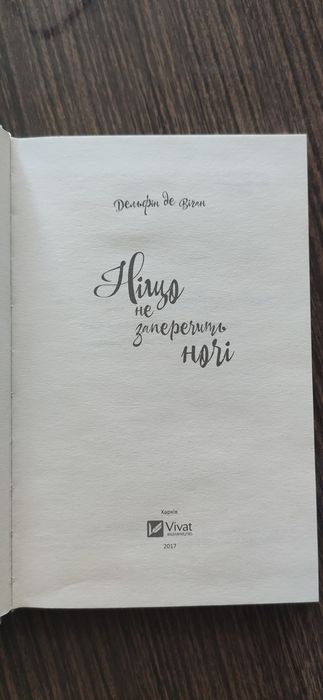 Дельфін де Віган
Ніщо
не
заперечить
ночі
Харків
Vivat
ВИДАВНИЦТВО
2017